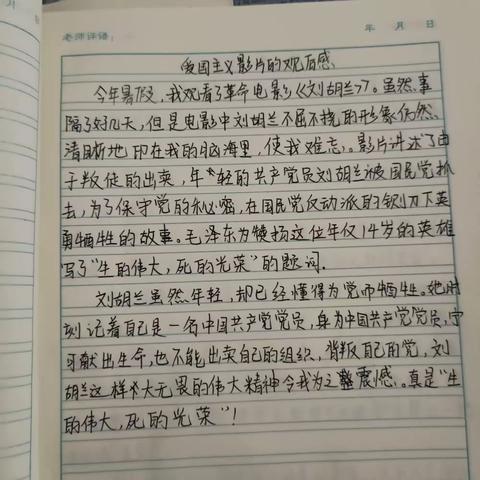 老师评语：
年 月 日
爱国主义影片的观后感
今年暑假，我观看了革命电影《刘胡兰》。虽然事
隔了好几天，但是电影中刘胡兰不屈不挠的形象仍然
清晰地印在我的脑海里，使我难忘。影片讲述了由
于叛徒的出卖，年轻的共产党员刘胡兰被国民党抓
去，为了保守党的秘密，在国民党反动派的铡刀下英
勇牺牲的故事。毛泽东为赞扬这位年仅14岁的英雄
写了“生的伟大，死的光荣”的题词。
刘胡兰虽然年轻，却已经懂得为党而牺牲。她时
刻记着自己是一名中国共产党党员，身为中国共产党党员，宁
可献出生命，也不能出卖自己的组织，背叛自己的党，刘
胡兰这样大无畏的伟大精神令我为之震憾。真是“生
的伟大，死的光荣”！